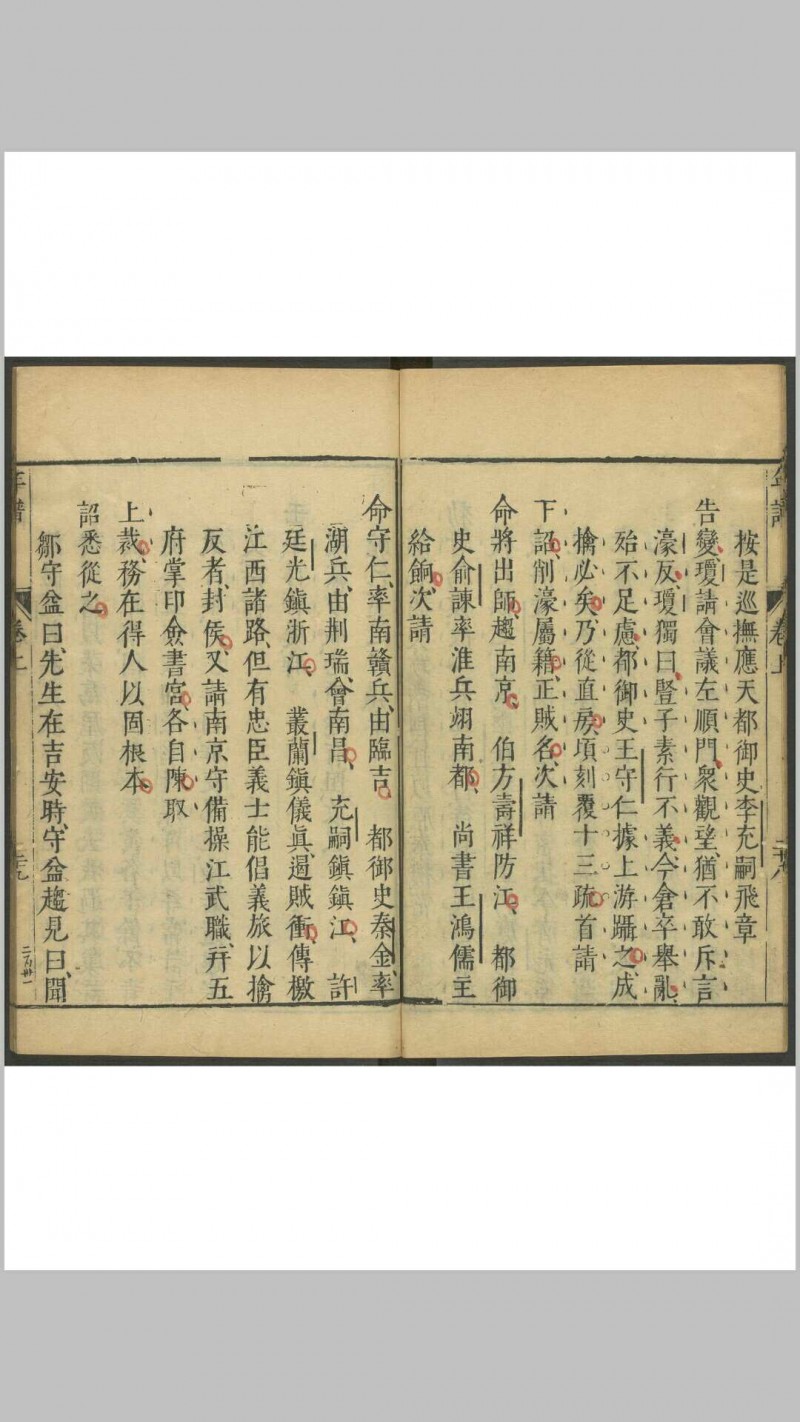 年譜 卷上 二十八
按是巡撫應天都御史李充嗣飛章
告變瓊請會議左順門衆觀望猶不敢斥言
濠反瓊獨曰豎子素行不義今倉卒舉亂
殆不足慮都御史王守仁據上游躡之成
擒必矣乃從直房頃刻覆十三疏首請
下詔削濠屬籍正賊名次請
命將出師趨南京 伯方壽祥防江 都御
史俞諫率淮兵翊南都 尚書王鴻儒主
給餉次請
命守仁率南贛兵由臨吉 都御史秦金率
湖兵由荆瑞會南昌 充嗣鎮鎮江 許
廷光鎮浙江 叢蘭鎮儀眞遏賊衝傳檄
江西諸路但有忠臣義士能倡義旅以擒
反者封侯又請南京守備操江武職幷五
府掌印僉書官各自陳取
上裁務在得人以固根本
詔悉從之
鄒守益曰先生在吉安時守益趨見曰聞
年譜 卷上 二十九